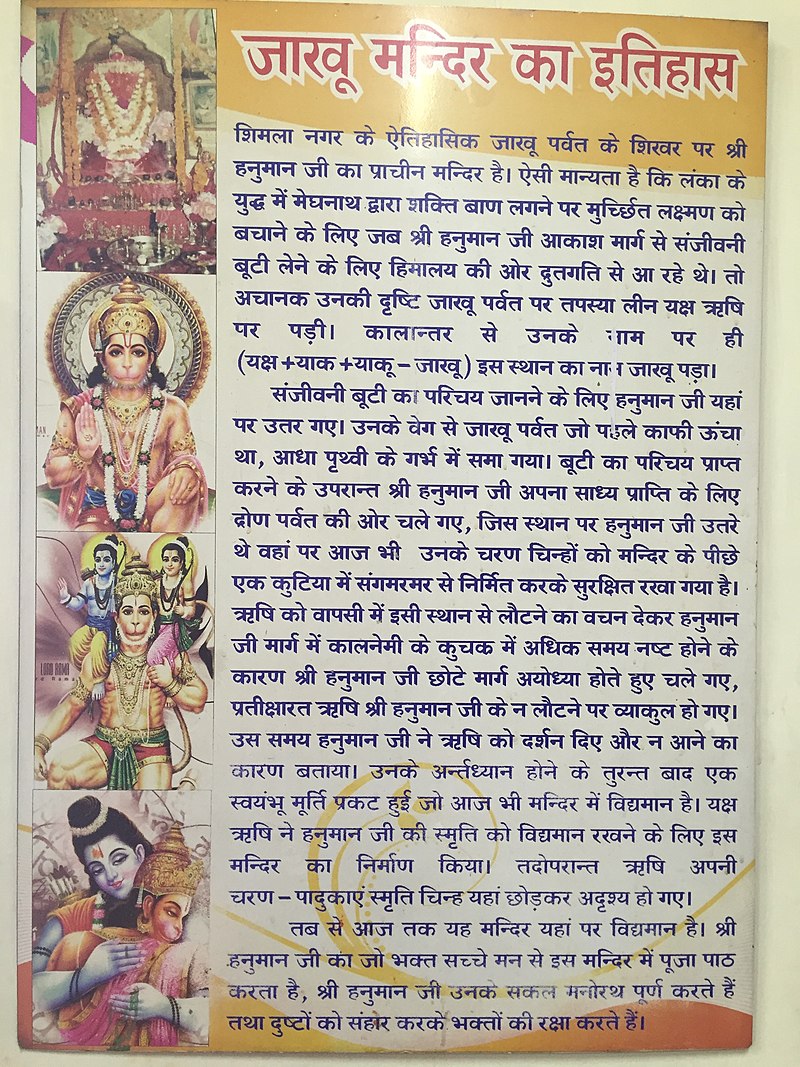 जाखू मन्दिर का इतिहास
शिमला नगर के ऐतिहासिक जाखू पर्वत के शिखर पर श्री
हनुमान जी का प्राचीन मन्दिर है। ऐसी मान्यता है कि लंका के
युद्ध में मेघनाथ द्वारा शक्ति बाण लगने पर मुर्च्छित लक्ष्मण को
बचाने के लिए जब श्री हनुमान जी आकाश मार्ग से संजीवनी
बूटी लेने के लिए हिमालय की ओर दुतगति से आ रहे थे। तो
अचानक उनकी दृष्टि जाखू पर्वत पर तपस्या लीन यक्ष ऋषि
पर पड़ी। कालान्तर से उनके नाम पर ही
(यक्ष+याक+याकू – जाखू) इस स्थान का नाम जाखू पड़ा।
संजीवनी बूटी का परिचय जानने के लिए हनुमान जी यहां
पर उतर गए। उनके वेग से जाखू पर्वत जो पहले काफी ऊंचा
था, आधा पृथ्वी के गर्भ में समा गया। बूटी का परिचय प्राप्त
करने के उपरान्त श्री हनुमान जी अपना साध्य प्राप्ति के लिए
द्रोण पर्वत की ओर चले गए, जिस स्थान पर हनुमान जी उतरे
थे वहां पर आज भी उनके चरण चिन्हों को मन्दिर के पीछे
एक कुटिया में संगमरमर से निर्मित करके सुरक्षित रखा गया है।
ऋषि को वापसी में इसी स्थान से लौटने का वचन देकर हनुमान
जी मार्ग में कालनेमी के कुचक में अधिक समय नष्ट होने के
कारण श्री हनुमान जी छोटे मार्ग अयोध्या होते हुए चले गए,
प्रतीक्षारत ऋषि श्री हनुमान जी के न लौटने पर व्याकुल हो गए।
उस समय हनुमान जी ने ऋषि को दर्शन दिए और न आने का
कारण बताया। उनके अर्न्तध्यान होने के तुरन्त बाद एक
स्वयंभू मूर्ति प्रकट हुई जो आज भी मन्दिर में विद्यमान है। यक्ष
ऋषि ने हनुमान जी की स्मृति को विद्यमान रखने के लिए इस
मन्दिर का निर्माण किया। तदोपरान्त ऋषि अपनी
चरण – पादुकाएं स्मृति चिन्ह यहां छोड़कर अदृश्य हो गए।
तब से आज तक यह मन्दिर यहां पर विद्यमान है। श्री
हनुमान जी का जो भक्त सच्चे मन से इस मन्दिर में पूजा पाठ
करता है, श्री हनुमान जी उनके सकल मनोरथ पूर्ण करते हैं
तथा दुष्टों को संहार करके भक्तों की रक्षा करते हैं।
LORD RAMA